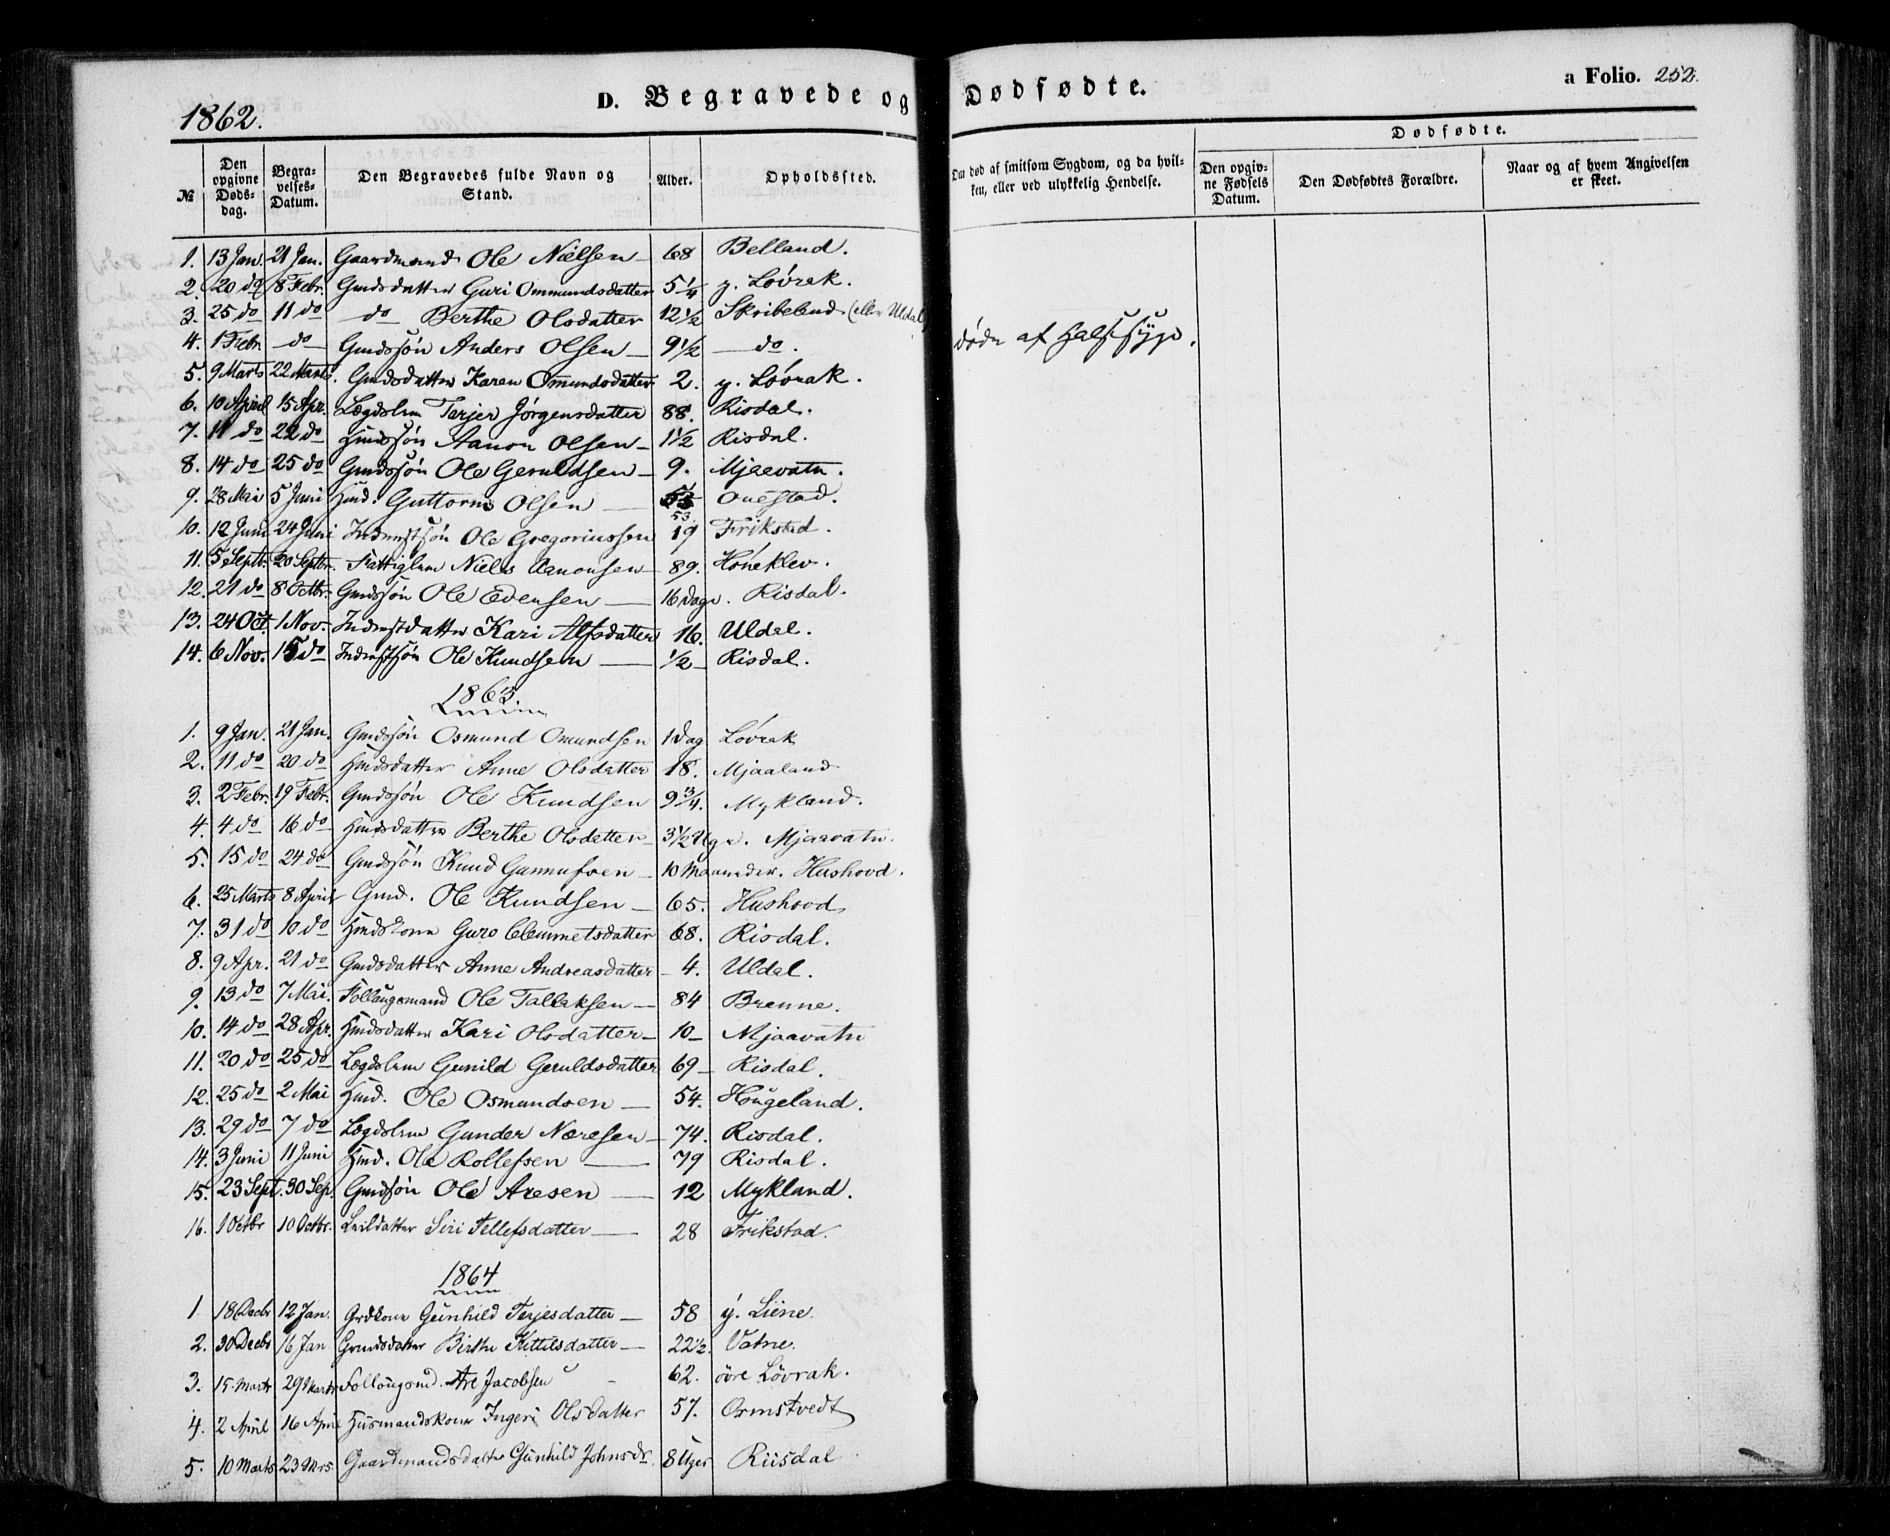 1862.
D. Begravede og Dødfødte.
a Folio. 252.
№
Den opgivne Døds-dag.
Begra-velses-Datum.
Den Begravedes fulde Navn og Stand.
Alder.
Opholdssted.
Om død af smitsom Sygdom, og da hvil-ken, eller ved ulykkelig Hendelse.
Dødfødte.
Den opgiv-ne Fødsels Datum.
Den Dødfødtes Forældre.
Naar og af hvem Angivelsen er skeet.
1. 13 Jan. 21 Jan. Gaardmand Ole Nielsen — 68 Belland.
2. 20 do 8 Febr. Gmdsdatter Guri Ommundsdatter 5 1/4 y. Løvrak.
3. 25 do 11 do do Berthe Olsdatter 12 1/2 Skribeland (eller Uldal)
4. 1 Febr. do Gmdssøn Anders Olsen — 9 1/2 do. døde af Halssyge.
5. 9 Marts 22 Marts. Gmdsdatter Karen Omundsdatter 2. y. Løvrak.
6. 10 April 15 Apr. Lægdslem Terjer Jørgensdatter 88. Risdal.
7. 11 do 22 do Hmdssøn Aanon Olsen — 1 1/2 Risdal.
8. 14 do 25 do Gmdssøn Ole Geruldsen — 9. Mjaavatn.
9. 28 Mai 5 Juni Hmd. Guttorm Olsen — 53 Onestad.
10. 12 Juni 24 Juni Inderstsøn Ole Gregoriussen 19 Frikstad.
11. 5 Septr. 20 Septbr. Fattiglem Niels Aanonsen — 89. Høneklev.
12. 21 do 8 Octbr. Gmdssøn Ole Edensen — 16 Dage. Risdal.
13. 24 Oct. 1 Nov. Inderstdatter Kari Alfsdatter 16. Uldal.
14. 6 Nov. 15 do Inderstsøn Ole Knudsen — 1/2 Risdal.
1863.
1. 9 Jan. 21 Jan. Gmdssøn Osmund Omundsen 1 Dag Løvrak
2. 11 do 20 do Hmdsdatter Anne Olsdatter 18. Mjaaland
3. 2 Febr. 19 Febr. Gmdssøn Ole Knudsen 9 3/4. Mykland.
4. 4 do 16 do Hmdsdatter Berthe Olsdatter — 3 1/2 Uge. Mjaavatn.
5. 15 do 24 do Gmdssøn Knud Gunnufsen — 10 Maaneder. Hushovd.
6. 25 Marts 8 April Gmd. Ole Knudsen — 65. Hushovd
7. 31 do 10 do Hmdskone Guro Clemmetsdatter 68. Risdal.
8. 9 Apr. 21 do Gmdsdatter Anne Andreasdatter — 4. Uldal.
9. 13 do 7 Mai. Follaugsmand Ole Tallaksen — 84 Brenne.
10. 14 do 28 Apr. Hmdsdatter Kari Olsdatter — 10 — Mjaavatn
11. 20 do 25 do Lægdslem Gunild Geruldsdatter 69 — Risdal.
12. 25 do 2 Mai Hmd. Ole Osmundsen — 54. Hougeland.
13. 29 do 7 do Lægdslem Gunder Næresen — 74. Risdal.
14. 3 Juni 11 Juni Hmd. Ole Rollefsen — 79 Risdal.
15. 23 Sept. 30 Sep. Gmdssøn Ole Aresen — 12 Mykland.
16. 1 Octbr 10 Octbr. Leildatter Siri Tellefsdatter — 28 Frikstad.
1864
1. 18 Decbr 12 Jan. Grdkone Gunhild Terjesdatter — 58 y. Liene.
2. 30 Decbr 16 Jan Grmdsdatter Birthe Kittilsdatter — 22 1/2. Vatne.
3. 15 Marts 29 Marts Follougsmd. Are Jacobsen 62. övre Lövrak.
4. 2 April 16 April Husmandskone Ingeri Olsdatter 57. Ormstvedt
5. 10 Marts 23 Mrs. Gaardmandsdatter Gunhild Johnsdr. 8 Uger Riisdal